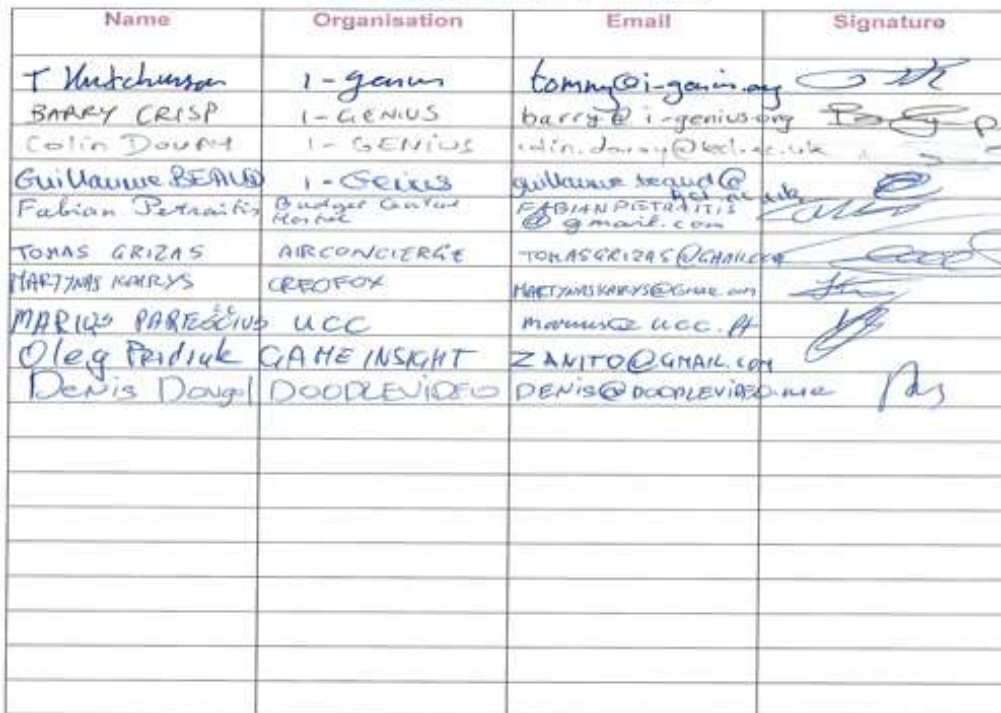 Name Organisation Email Signature
T Hutchinson 1-genius tommy@i-genius.org
BARRY CRISP 1-GENIUS barry@i-genius.org
Colin 1-GENIUS
Guillaume 1-Genius guillaume
Fabian Petraitis Budget Central Hostel FABIANPIETRAITIS@gmail.com
TOMAS GRIZAS AIRCONCIERGE TOMASGRIZAS@GMAIL.COM
MARTYNAS KAIRYS CREOFOX MARTYNASKAIRYS@GMAIL.COM
MARIUS PAREŠČIUS UCC
Oleg Pridiuk GAME INSIGHT ZANITO@GMAIL.COM
Denis Dougl DOODLEVIDEO DENIS@DOODLEVIDEO.me